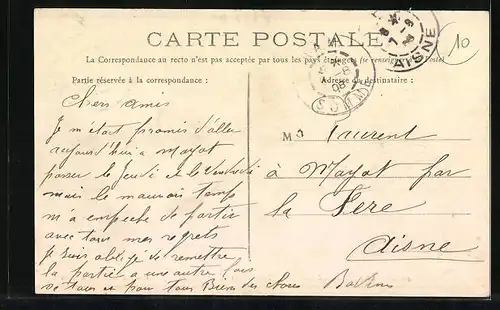 CARTE POSTALE
La Correspondance au recto n'est pas acceptée par tous les pays étrangers (se renseigner à la Poste)
Partie réservée à la correspondance :
Adresse du destinataire :
10
AISNE
SOMME
Chers amis
Je m'était promis d'aller
aujourd'hui a Mayot
passer le Jeudi et le Vendredi
mais le mauvais temp
m a empeche de partir
avec tous mes regrets
je suis obligé de remettre
la partie a une autre fois
tous et pour tous Bien des choses
M
Laurent
à Mayot par
la Fere
Aisne